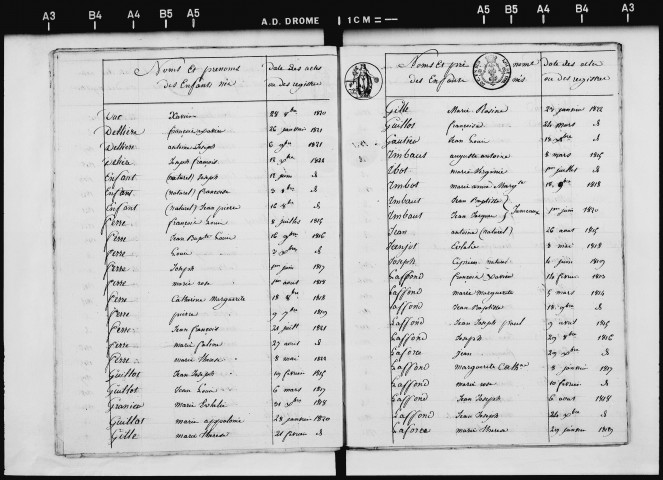 A3 B4 A4 B5 A5 A.D. DROME 1 CM = A5 B5 A4 B4 A3
Noms et prenoms Date des actes
des Enfants nés ou des registres
Duc Xavier 28 8bre 1820
Delliere françois Xavier 26 janvier 1821
Delliere antoine Joseph 6 9bre 1821
Joseph françois 12 1822
Enfant (naturel) Joseph 12 juin d
Enfant (naturel) francoise d
Enfant (naturel) Jean pierre 16 8bre d
Perre françois Louis 8 juillet 1815
Perre Jean Bapte Louis 16 9bre 1816
Perre Louis d
Perre Joseph 1er juin 1817
Perre marie rose 1er aout 1818
Perre Catherine Marguerite 18 8bre 1818
Perre pierre 9 9bre 1819
Perre Jean françois 21 juillet 1821
Perre marie 27 aout d
Perre marie Therese 8 mai 1822
Guillot Jean Joseph 19 février 1815
Guillot Jean Louis 6 mars 1817
Granier marie Eulalie 1818
Guillot marie appolonie 28 janvier 1820
Gille marie Therese 21 février d
Noms et pré noms Date des actes
des Enfants nés ou des registres
Gille Marie Rosine 24 janvier 1822
Guillot françoise 24 mars d
Gautier Jean Louis 18 d
Imbaut auguste antoine 8 mars 1815
Ibot marie Virginie 1er juillet d
Imbot marie anne Margte 18 9bre 1818
Imbaut Jean Baptiste
Imbaut Jean Jacques Jumeaux 1er juin 1820
Jean antoine (naturel) 26 aout 1815
Eulalie 8 mai 1818
Joseph Ciprien naturel 4 juin 1819
Laffond françois Xavier 14 février 1813
Laffond marie marguerite 5 mars 1814
Laffond Jean Baptiste 18 9bre d
Laffond Jean Joseph Paul 9 avril 1815
Laffond Joseph 29 8bre 1816
Laforce Jean 29 d
Laffond marguerite Cathe 8 janvier 1817
Laffond marie rose 10 février d
Laffond Jean Joseph 6 aout 1818
Laffond Jean Joseph 24 d
Laforce marie Therese 29 janvier 1819